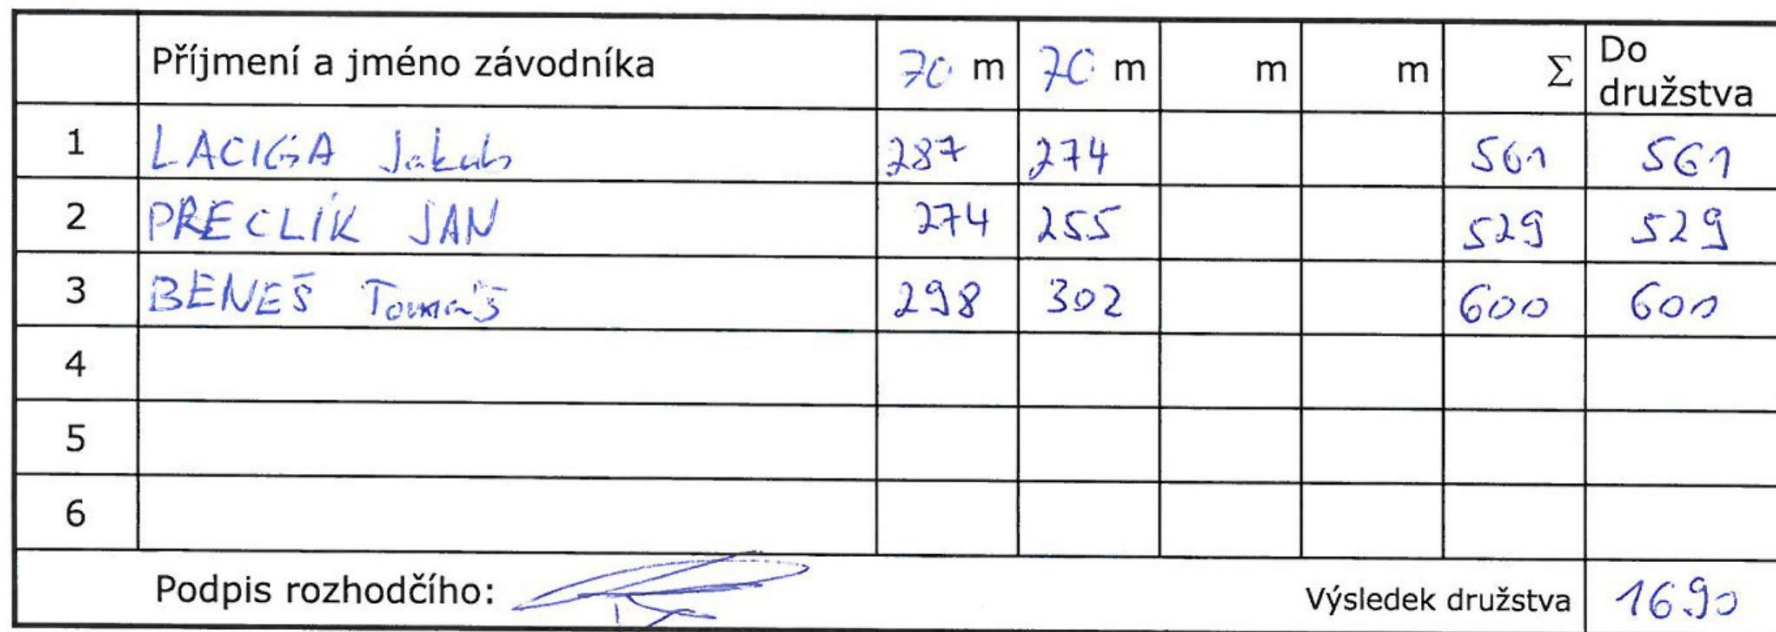 Příjmení a jméno závodníka 70 m 70 m m m Σ Do družstva
1 LACIGA Jakub 287 274 561 561
2 PRECLÍK JAN 274 255 529 529
3 BENEŠ Tomáš 298 302 600 600
4
5
6
Podpis rozhodčího: Výsledek družstva 1690